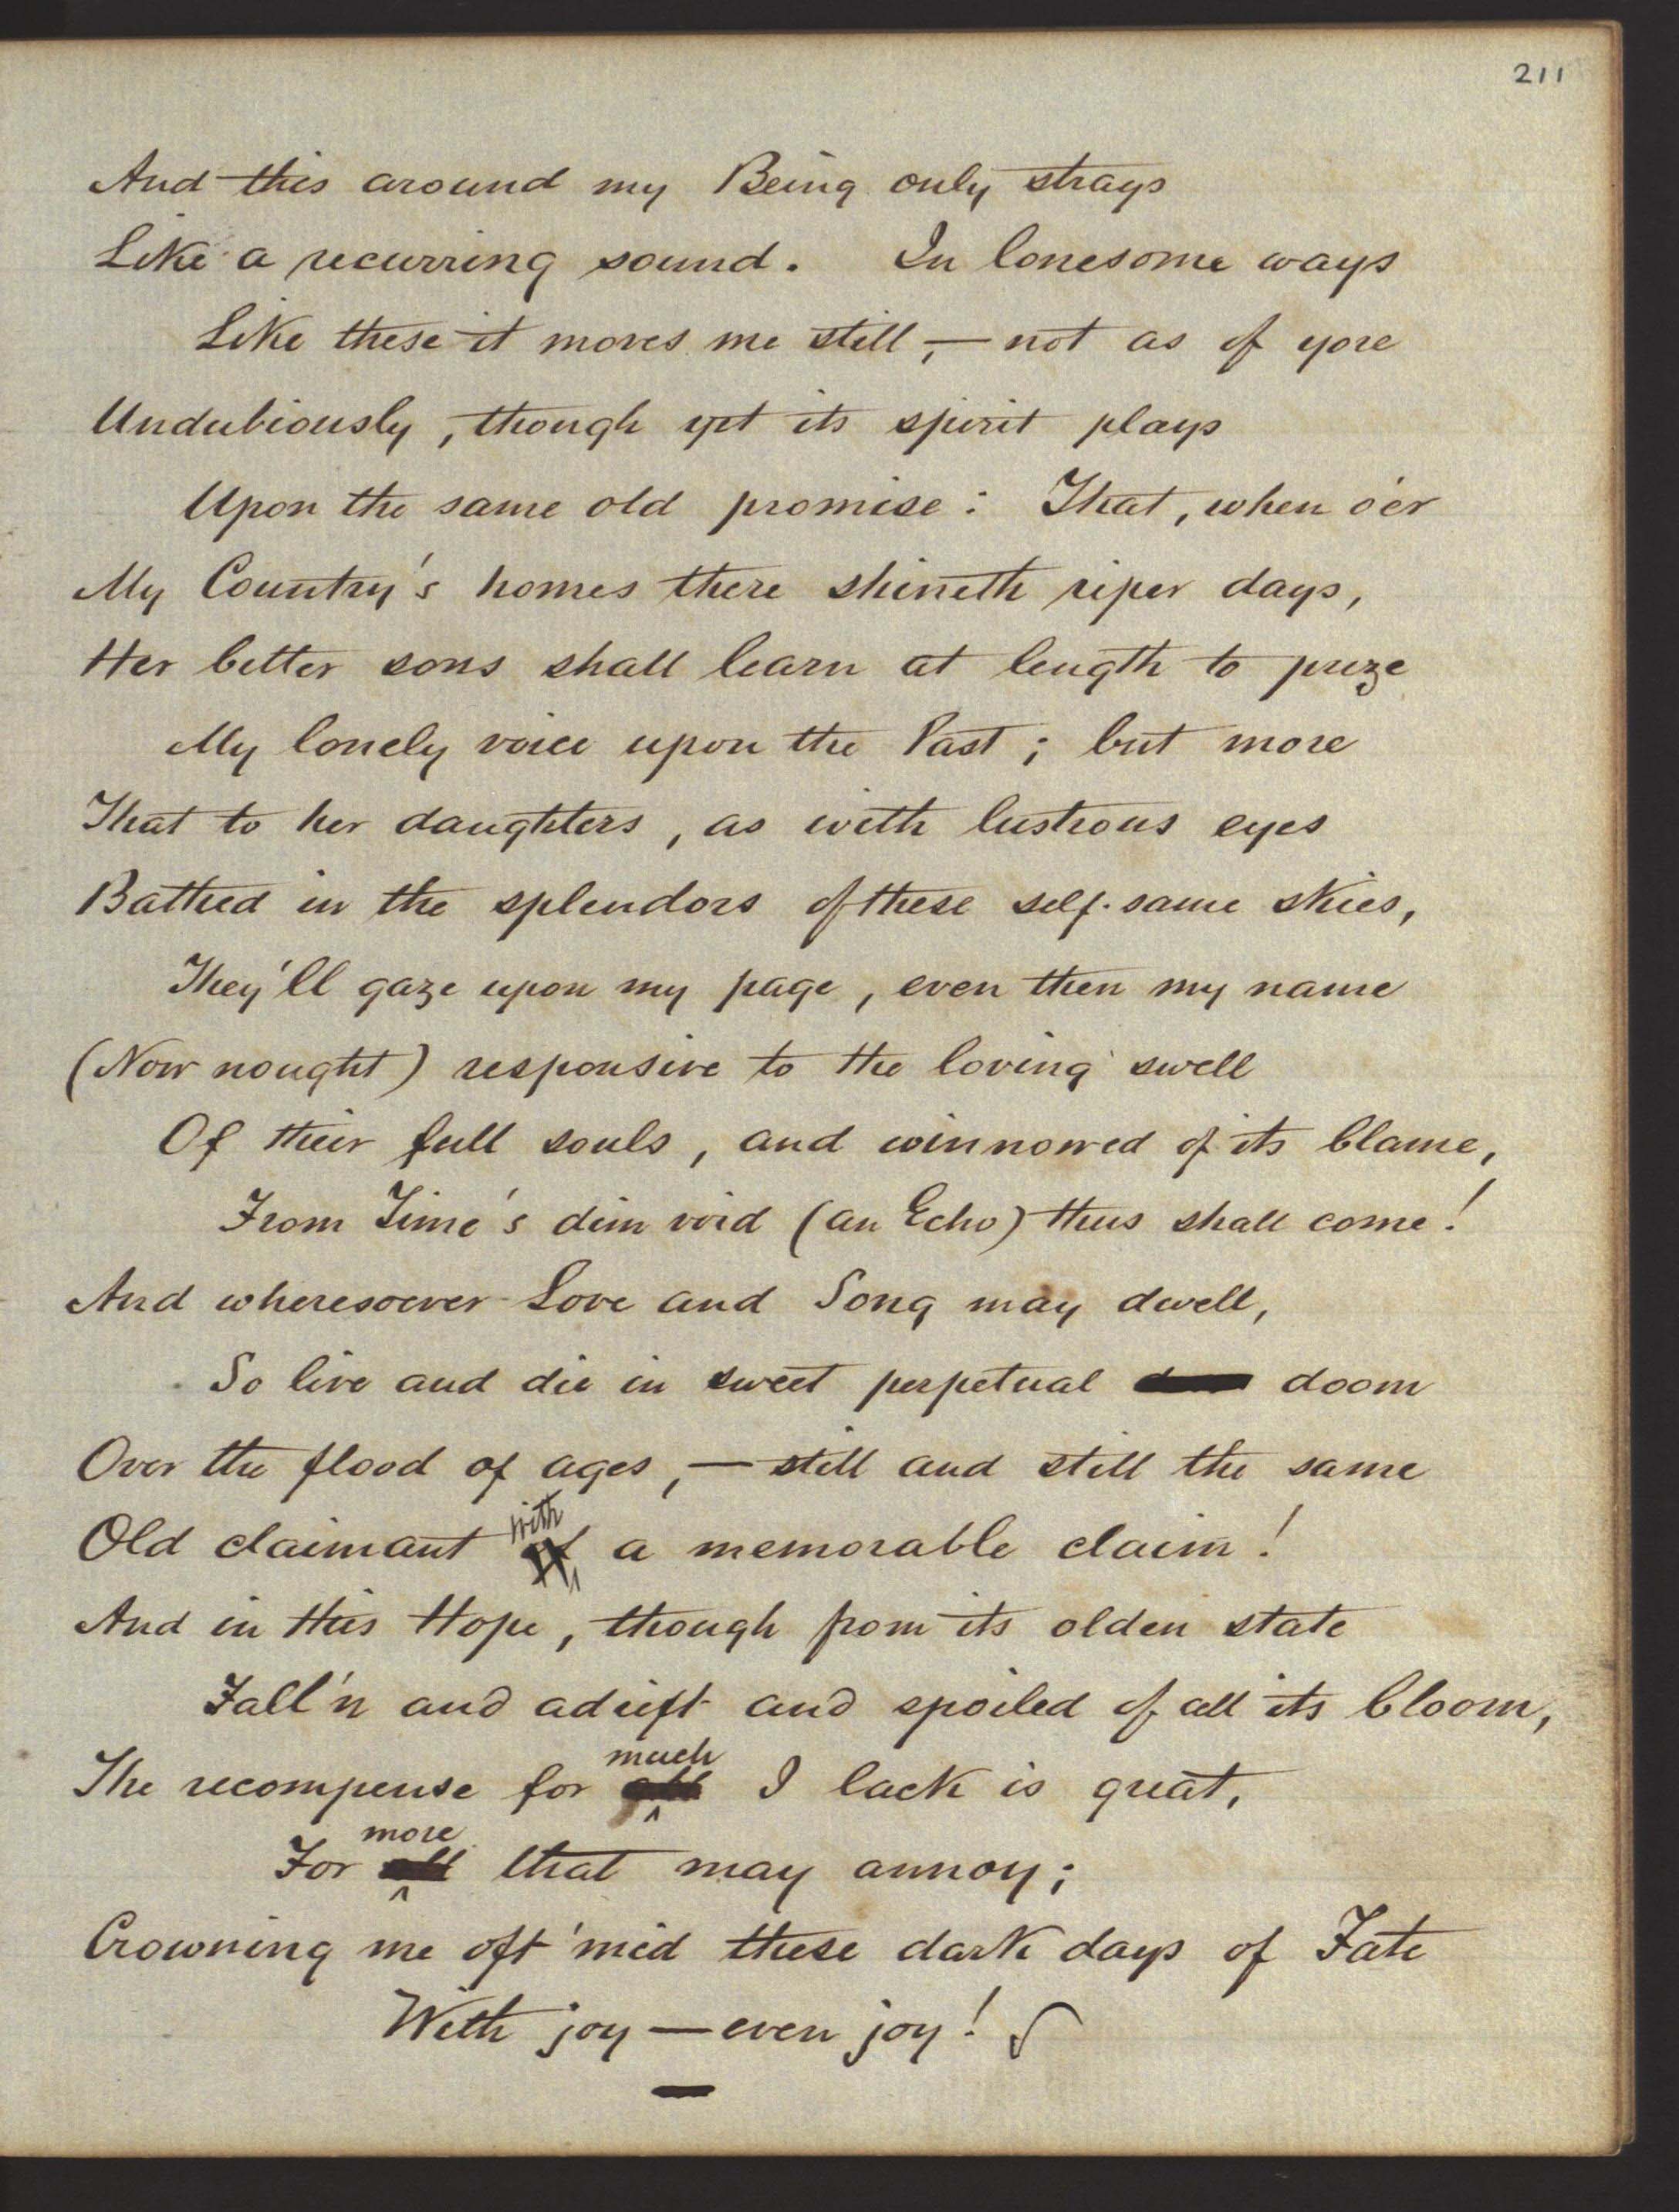 211
And this around my Being only strays
Like a recurring sound. In lonesome ways
Like these it moves me still,— not as of yore
Undubiously, though yet its spirit plays
Upon the same old promise: That, when o'er
My Country's homes there shineth riper days,
Her better sons shall learn at length to prize
My lonely voice upon the Past; but more
That to her daughters, as with lustrous eyes
Bathed in the splendors of these self-same skies,
They'll gaze upon my page, even then my name
(Now nought) responsive to the loving swell
Of their full souls, and winnowed of its blame,
From Time's dim void (an Echo) thus shall come!
And wheresoever Love and Song may dwell,
So live and die in sweet perpetual doom
Over the flood of ages,— still and still the same
Old claimant with a memorable claim!
And in this Hope, though from its olden state
Fall'n and adrift and spoiled of all its bloom,
The recompense for much I lack is great,
For more that may annoy;
Crowning me oft 'mid these dark days of Fate
With joy — even joy!